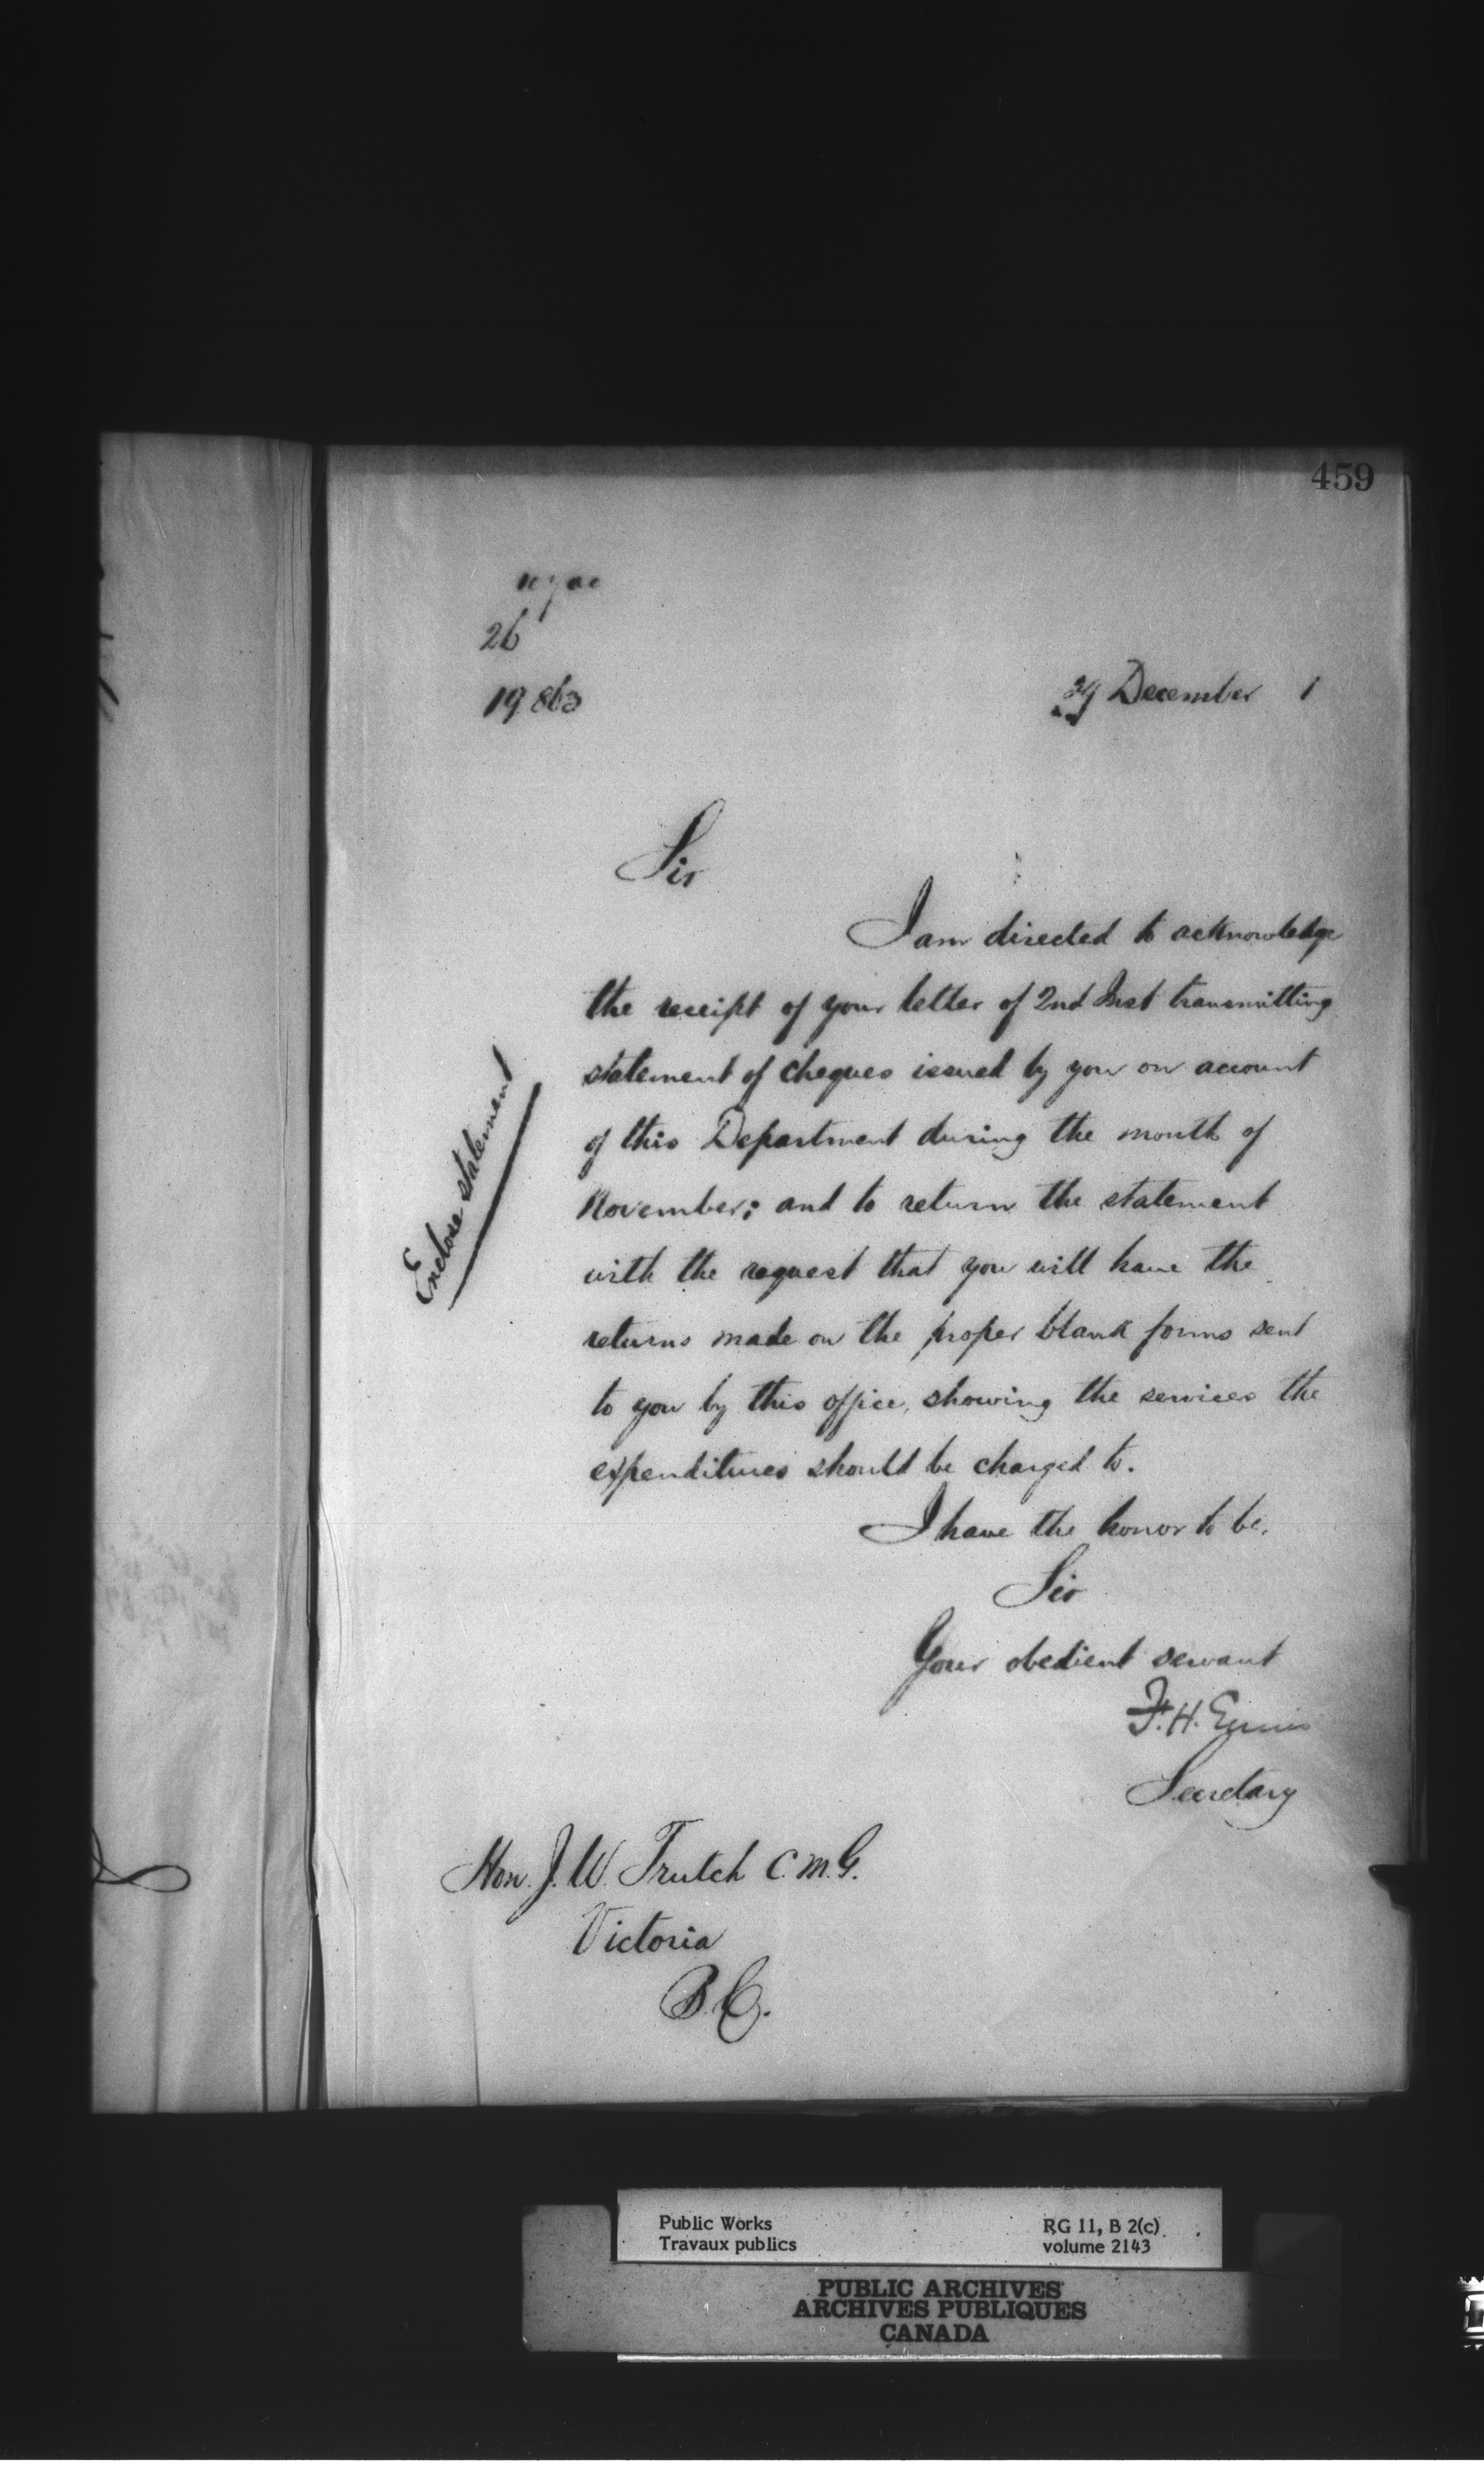 459
26
19863
29 December 1
Sir
I am directed to acknowledge
the receipt of your letter of 2nd Inst transmitting
statement of cheques issued by you on account
of this Department during the month of
November; and to return the statement
with the request that you will have the
returns made on the proper blank forms sent
to you by this office, showing the services the
expenditures should be charged to.
Enclose statement
I have the honor to be,
Sir
Your obedient servant
F. H. Ennis
Secretary
Hon. J. W. Trutch C.M.G.
Victoria
B.C.
Public Works
Travaux publics
RG 11, B 2(c)
volume 2143
PUBLIC ARCHIVES
ARCHIVES PUBLIQUES
CANADA